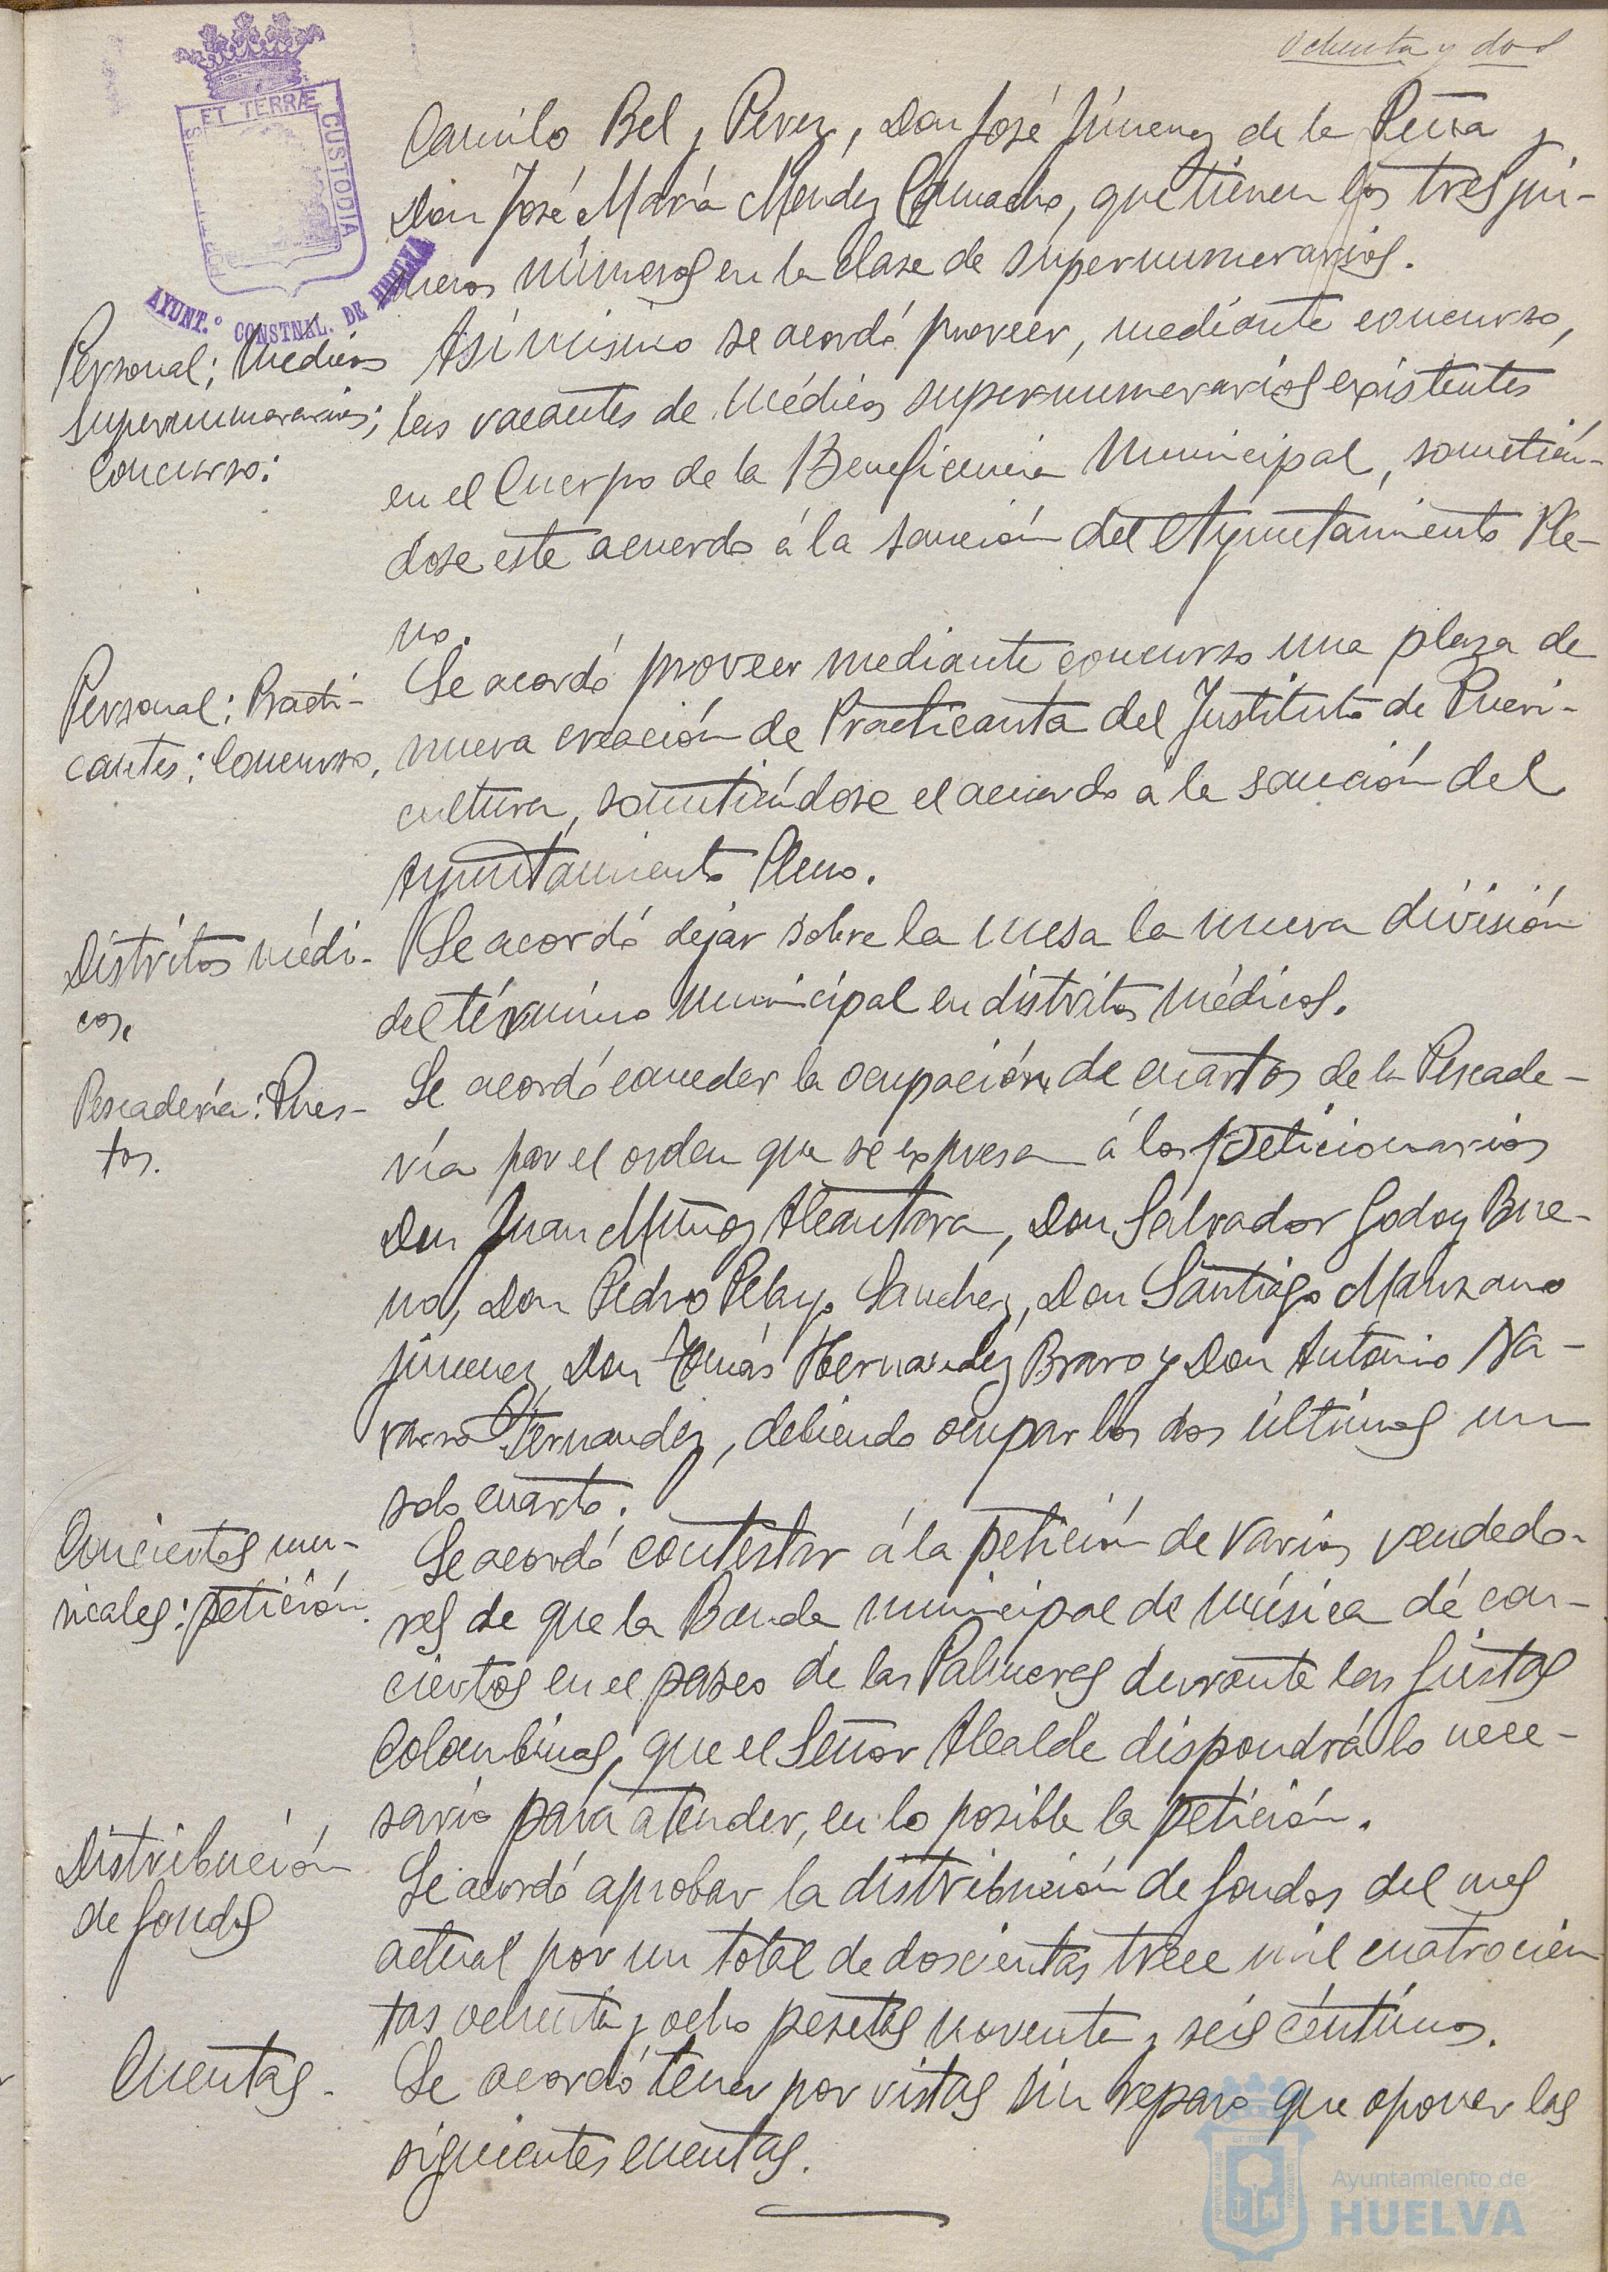 Ochenta y dos
ET TERRÆ CUSTODIA
AYUNT.º CONSTNAL. DE HUELVA
Camilo Bel y Perez, Don José Jimenez de la Peña y
Don José María Mendez Camacho, que tienen los tres pri-
meros números en la clase de supernumerarios.
Personal; Medicos
supernumerarios;
Concurso:
Asímismo se acordó proveer, mediante concurso,
las vacantes de Médicos supernumerarios existentes
en el Cuerpo de la Beneficencia Municipal, sometién-
dose este acuerdo á la sanción del Ayuntamiento Ple-
no.
Personal; Practi-
cantes; Concurso.
Se acordó proveer mediante concurso una plaza de
nueva creación de Practicanta del Instituto de Pueri-
cultura, sometiéndose el acuerdo á la sanción del
Ayuntamiento Pleno.
Distritos médi-
cos.
Se acordó dejar sobre la mesa la nueva división
del término municipal en distritos médicos.
Pescadería: Pues-
tos.
Se acordó conceder la ocupación de cuartos de la Pescade-
ría por el orden que se expresa á los peticionarios
Don Juan Muñoz Alcantara, Don Salvador Godoy Bue-
no, Don Pedro Pelayo Sanchez, Don Santiago Manzano
Jimenez, Don Tomás Hernandez Bravo y Don Antonio Na-
varro Fernandez, debiendo ocupar los dos últimos un
solo cuarto.
Conciertos mu-
sicales: petición.
Se acordó contestar á la petición de varios vendedo-
res de que la Banda municipal de música dé con-
ciertos en el paseo de las Palmeras durante las fiestas
Colombinas, que el Señor Alcalde dispondrá lo nece-
sario para atender, en lo posible la petición.
Distribución
de fondos
Se acordó aprobar la distribución de fondos del mes
actual por un total de doscientas trece mil cuatrocien
tas ochenta y ocho pesetas noventa y seis céntimos.
Cuentas.
Se acordó tener por vistas sin reparo que oponer las
siguientes cuentas.
Ayuntamiento de
HUELVA